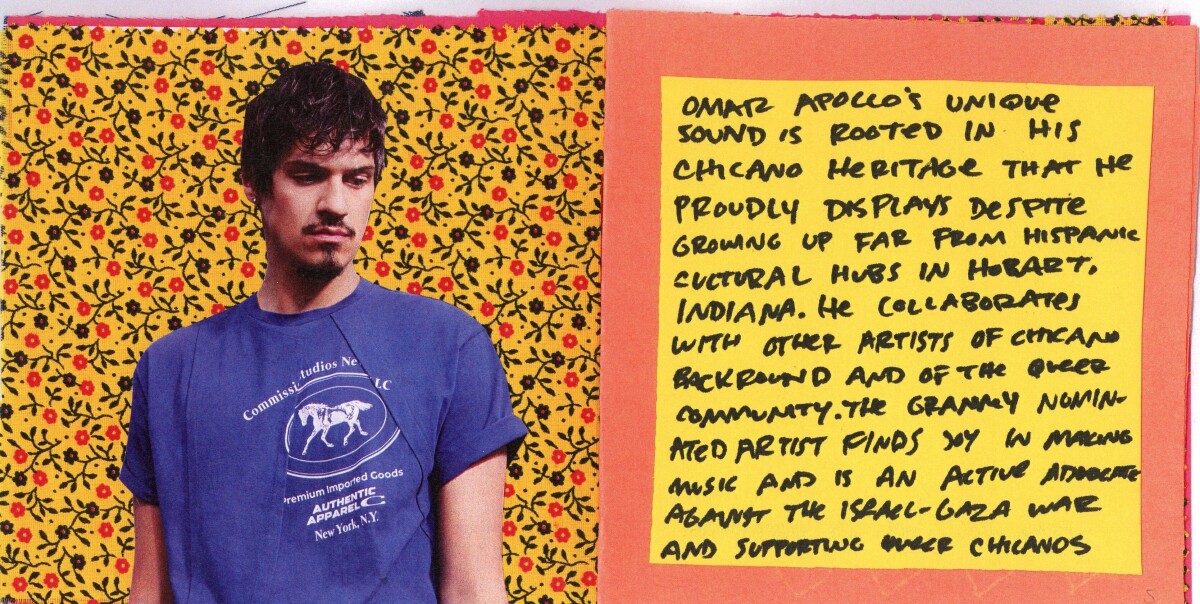 Commissi tudios Ne LC
Premium Imported Goods
AUTHENTIC
APPAREL
New York, N.Y.
OMAR APOLLO'S UNIQUE
SOUND IS ROOTED IN HIS
CHICANO HERITAGE THAT HE
PROUDLY DISPLAYS DESPITE
GROWING UP FAR FROM HISPANIC
CULTURAL HUBS IN HOBART,
INDIANA. HE COLLABORATES
WITH OTHER ARTISTS OF CHICANO
BACKROUND AND OF THE QUEER
COMMUNITY. THE GRAMMY NOMIN-
ATED ARTIST FINDS JOY IN MAKING
MUSIC AND IS AN ACTIVE ADVOCATE
AGAINST THE ISRAEL-GAZA WAR
AND SUPPORTING QUEER CHICANOS